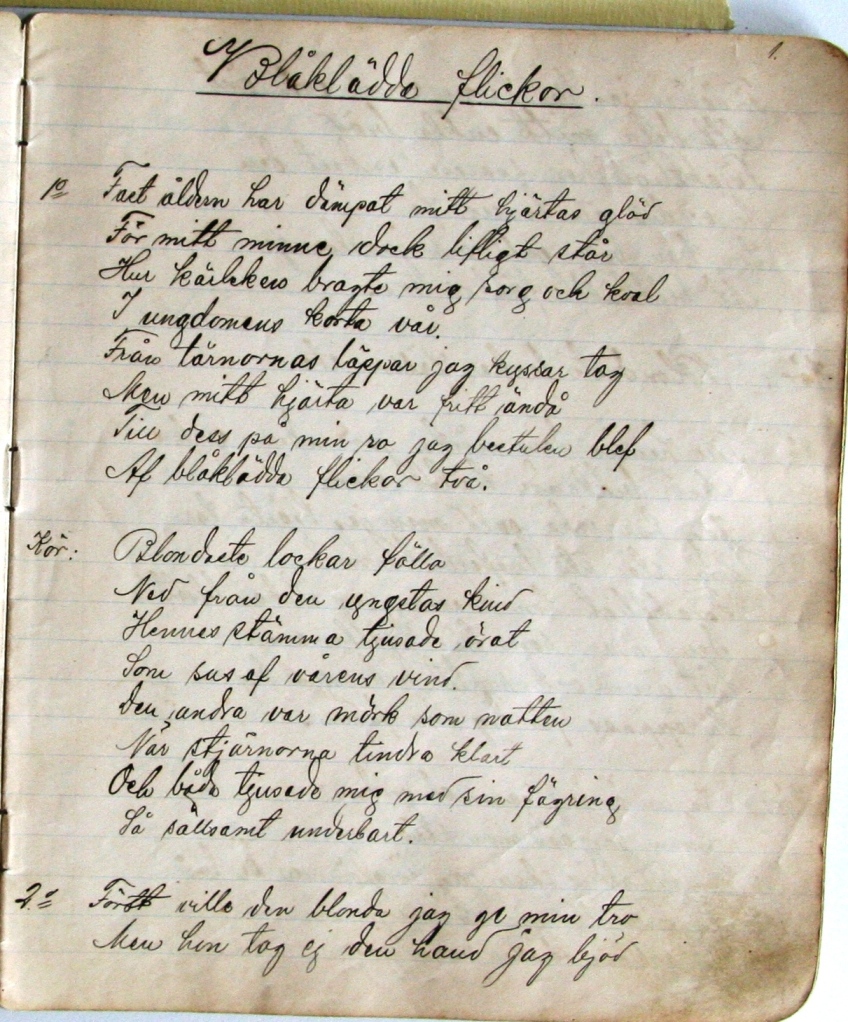 1.
Blåklädda flickor.
1o Fast åldern har dämpat mitt hjärtas glöd
För mitt minne dock lifligt står
Hur kärleken bragte mig sorg och kval
I ungdomens korta vår.
Från tärnornas läppar jag kyssar tog
Men mitt hjärta var fritt ändå
Till dess på min ro jag bestulen blef
Af blåklädda flickor två.
Kör: Blondaste lockar fälla
Ned från den yngstas kind
Hennes stämma tjusade örat
Som sus af vårens vind.
Den andra var mörk som natten
När stjärnorna tindra klart
Och båda tjusade mig med sin fägring
Så sällsamt underbart.
2o Först ville den blonda jag ge min tro
Men hon tog ej den hand jag bjöd